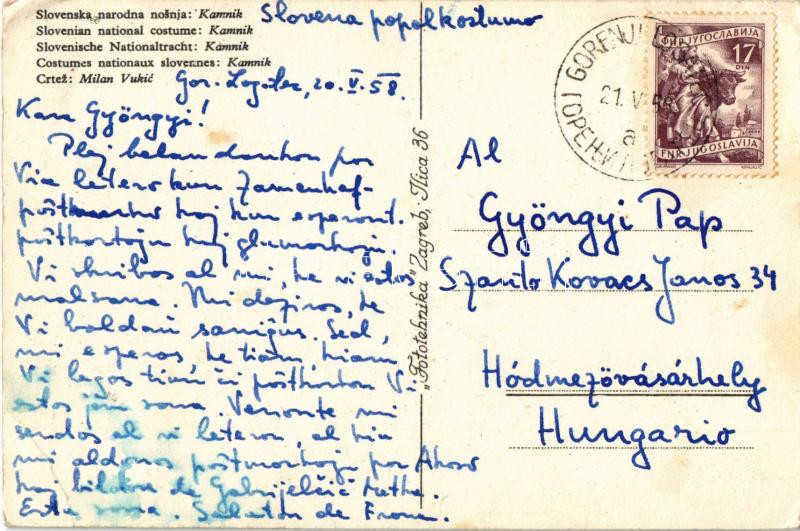 Slovenska narodna nošnja: Kamnik
Slovenian national costume: Kamnik
Slovenische Nationaltracht: Kamnik
Costumes nationaux slovennes: Kamnik
Crtež: Milan Vukić
Slovena popolkostumo
Gor. Logatec, 20. V. 58.
Kara Gyöngyi!
Plej belan dankon por
Via letero kun Zamenhof-
poŝtmarko kaj kun esperant.
poŝtkartoju kaj glumarkoju.
Vi skribas al mi, ke vi estas
malsana. Mi deziras, ke
Vi baldaŭ saniĝus. Sed,
mi esperas ke tiam, kiam
Vi legos tiun ĉi poŝtkarton Vi
estos jam sana. Venonte mi
sendos al vi leteron, al kiu
mi aldonos poŝtmarkoju por
kaj bildon de Gabrijelčič Metka.
Estu sana. Saluton de Franc.
"Fototehnika" Zagreb, Ilica 36
FNR JUGOSLAVIJA
17
DIN
FNR JUGOSLAVIJA
GORENJI LOGATEC
21. V. 58
a
Al
Gyöngyi Pap
Szanto Kovacs Janos 34
Hódmezóvásárhely
Hungario